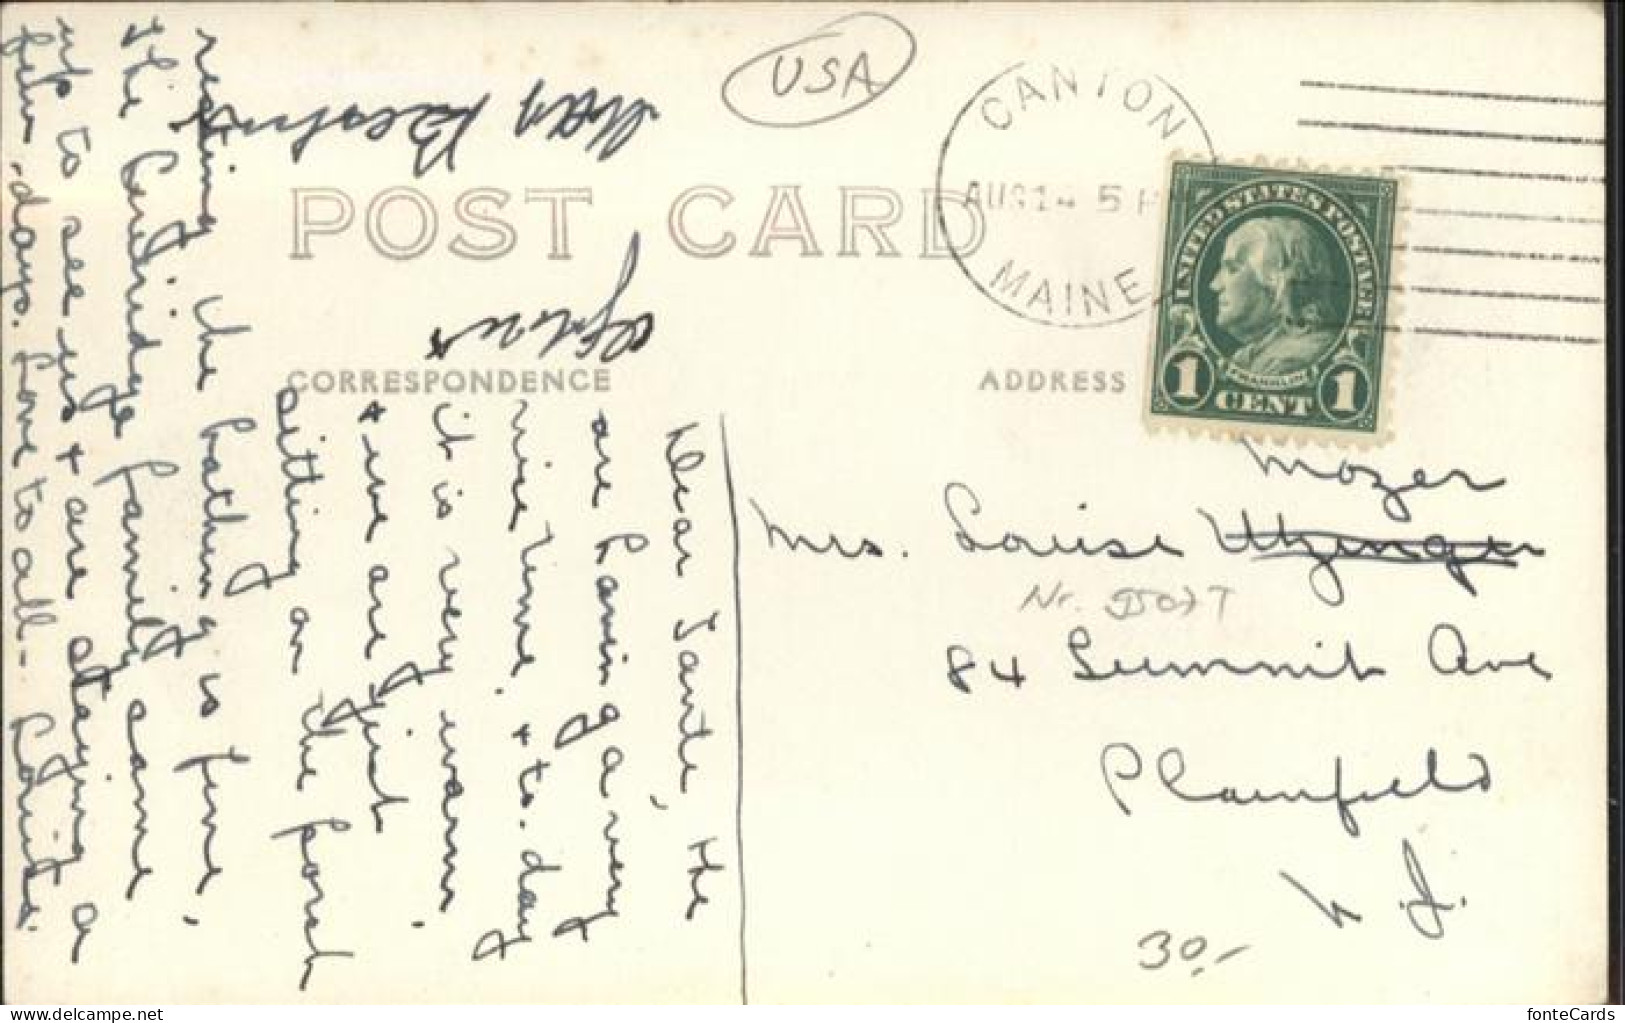 USA
CANTON
AUG 14 5 P
MAINE
UNITED STATES POSTAGE
FRANKLIN
1 CENT 1
POST CARD
CORRESPONDENCE
ADDRESS
Dear Tante, He
are having a very
nice time, + to-day
it is very warm,
+ we are just
sitting on the porch
resting, the bathing is fine,
The family came
up to see us + are staying a
few days. Love to all - Louise.
Mozer
Mrs. Louise Utzinger
84 Summit Ave
Plainfield
N. J.
30.-
fonteCards